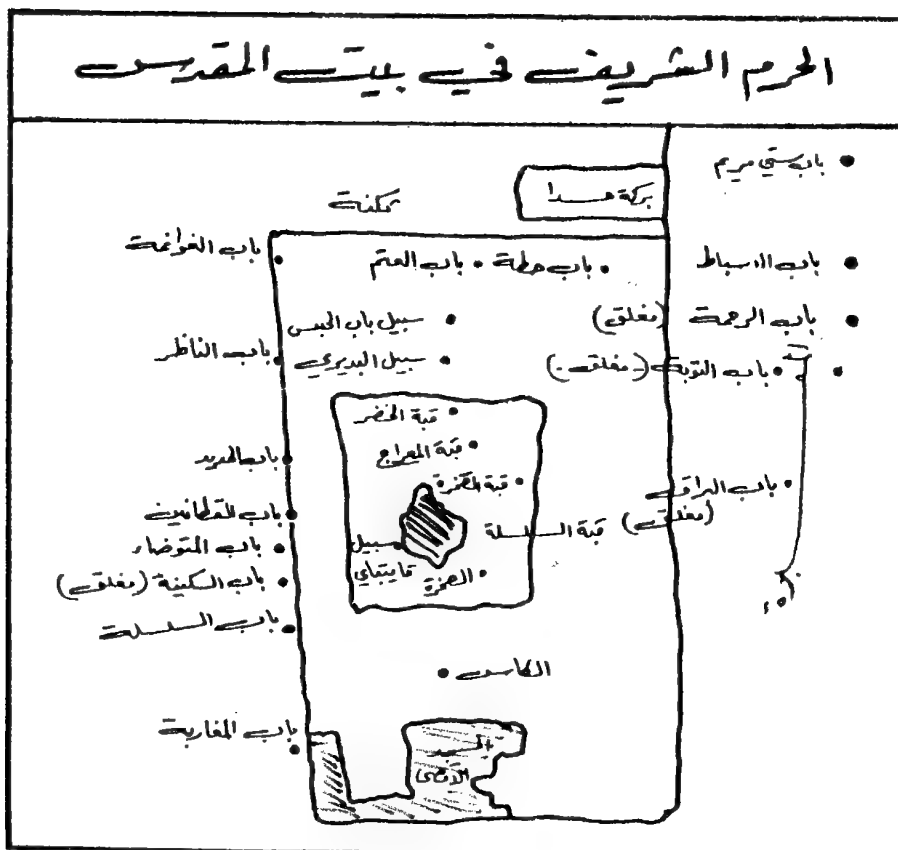 الحرم الشريف في بيت المقدس
باب ستي مريم
بركة
ثكنة
باب الغوانمة
باب العتم
باب حطة
باب الاسباط
سبيل باب الحبس
باب الرحمة (مغلق)
باب الناظر
سبيل البديري
باب التوبة (مغلق)
قبة الخضر
قبة المعراج
باب الحديد
قبة الصخرة
باب البراق
(مغلق)
باب القطانين
قبة السلسلة
باب المتوضاء
سبيل
قايتباي
الصخرة
باب السكينة (مغلق)
باب السلسلة
الكاس
باب المغاربة
المسجد
الأقصى